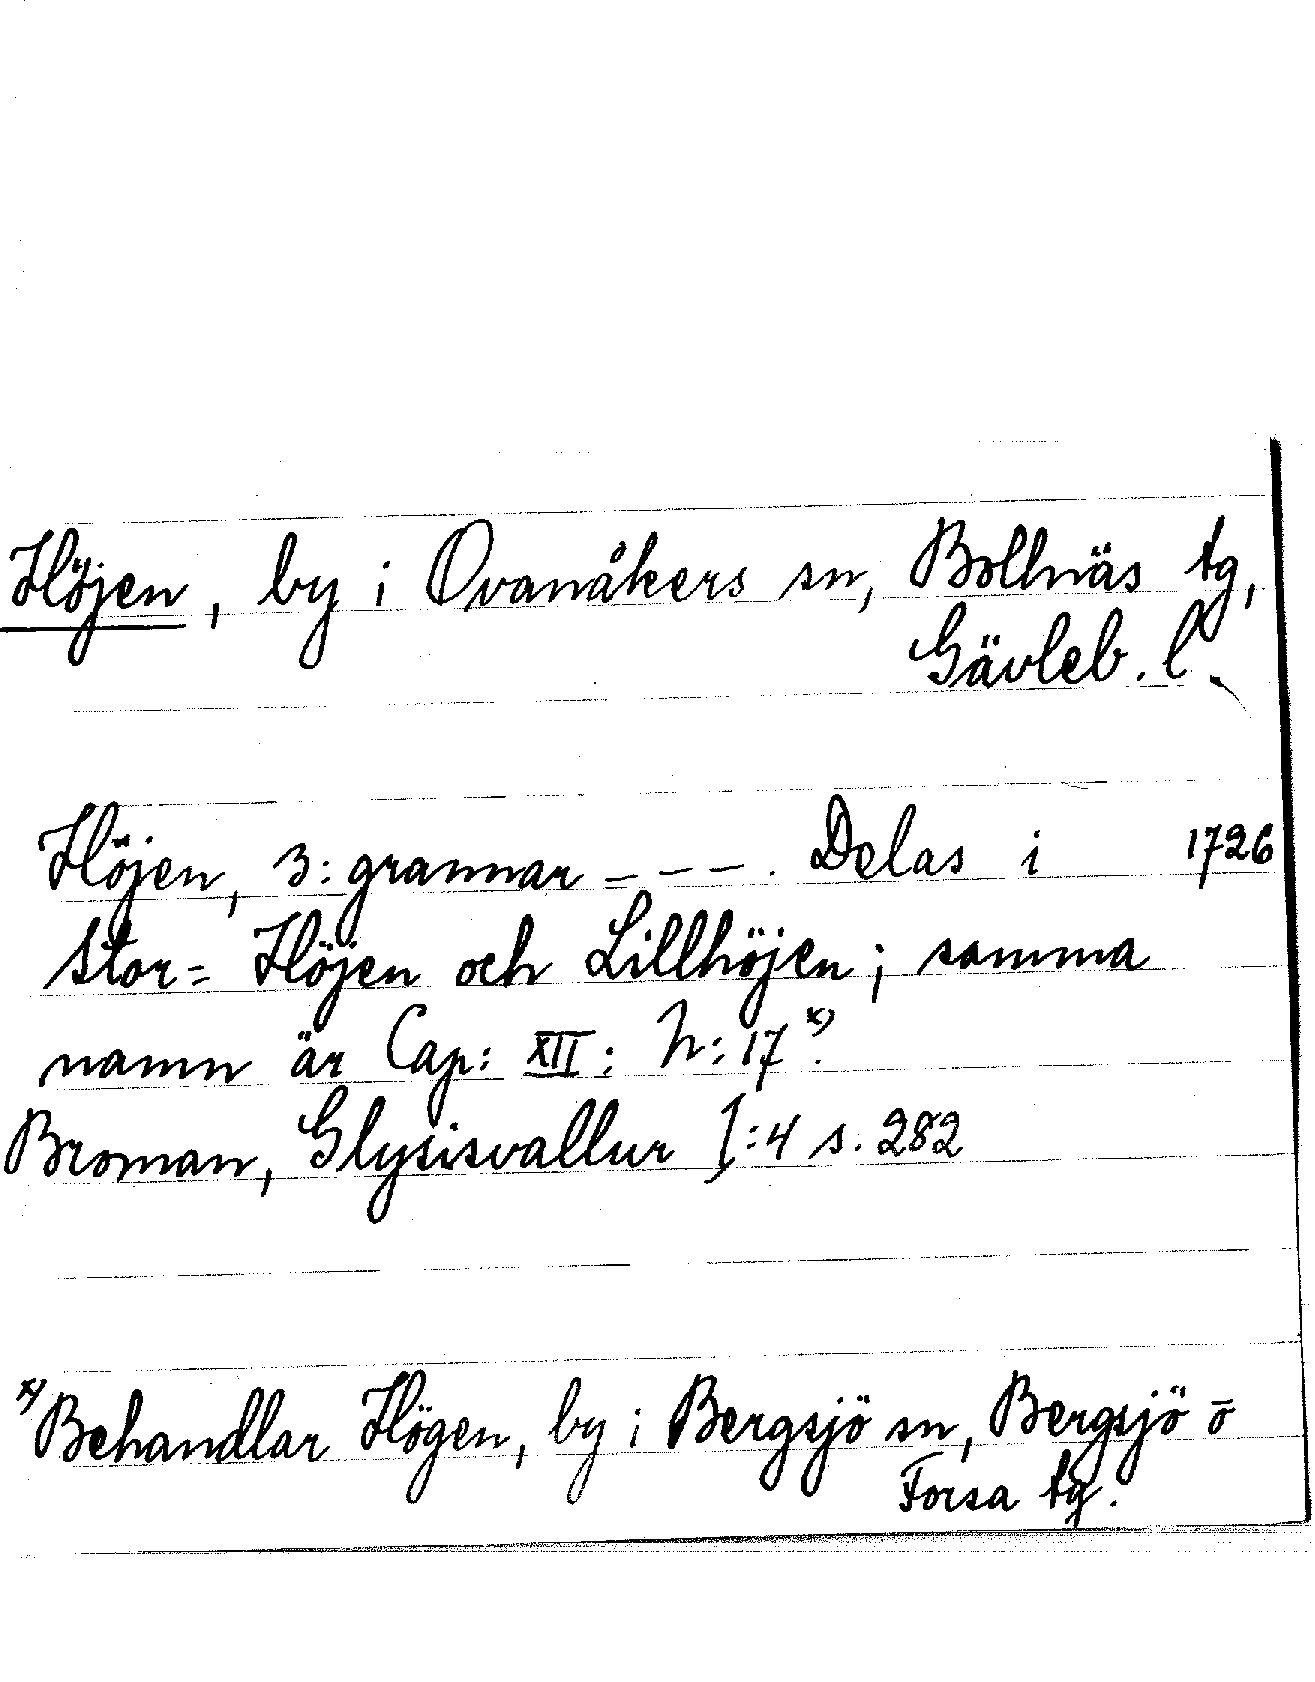 Höjen, by i Ovanåkers sn, Bollnäs tg,
Gävleb. l.
Höjen, 3: grannar - - - . Delas i 1726
Stor= Höjen och Lillhöjen; samma
namn är Cap: XII: N: 17 x).
Broman, Glysisvallur I:4 s. 282
x) Behandlar Högen, by i Bergsjö sn, Bergsjö o
Forsa tg.